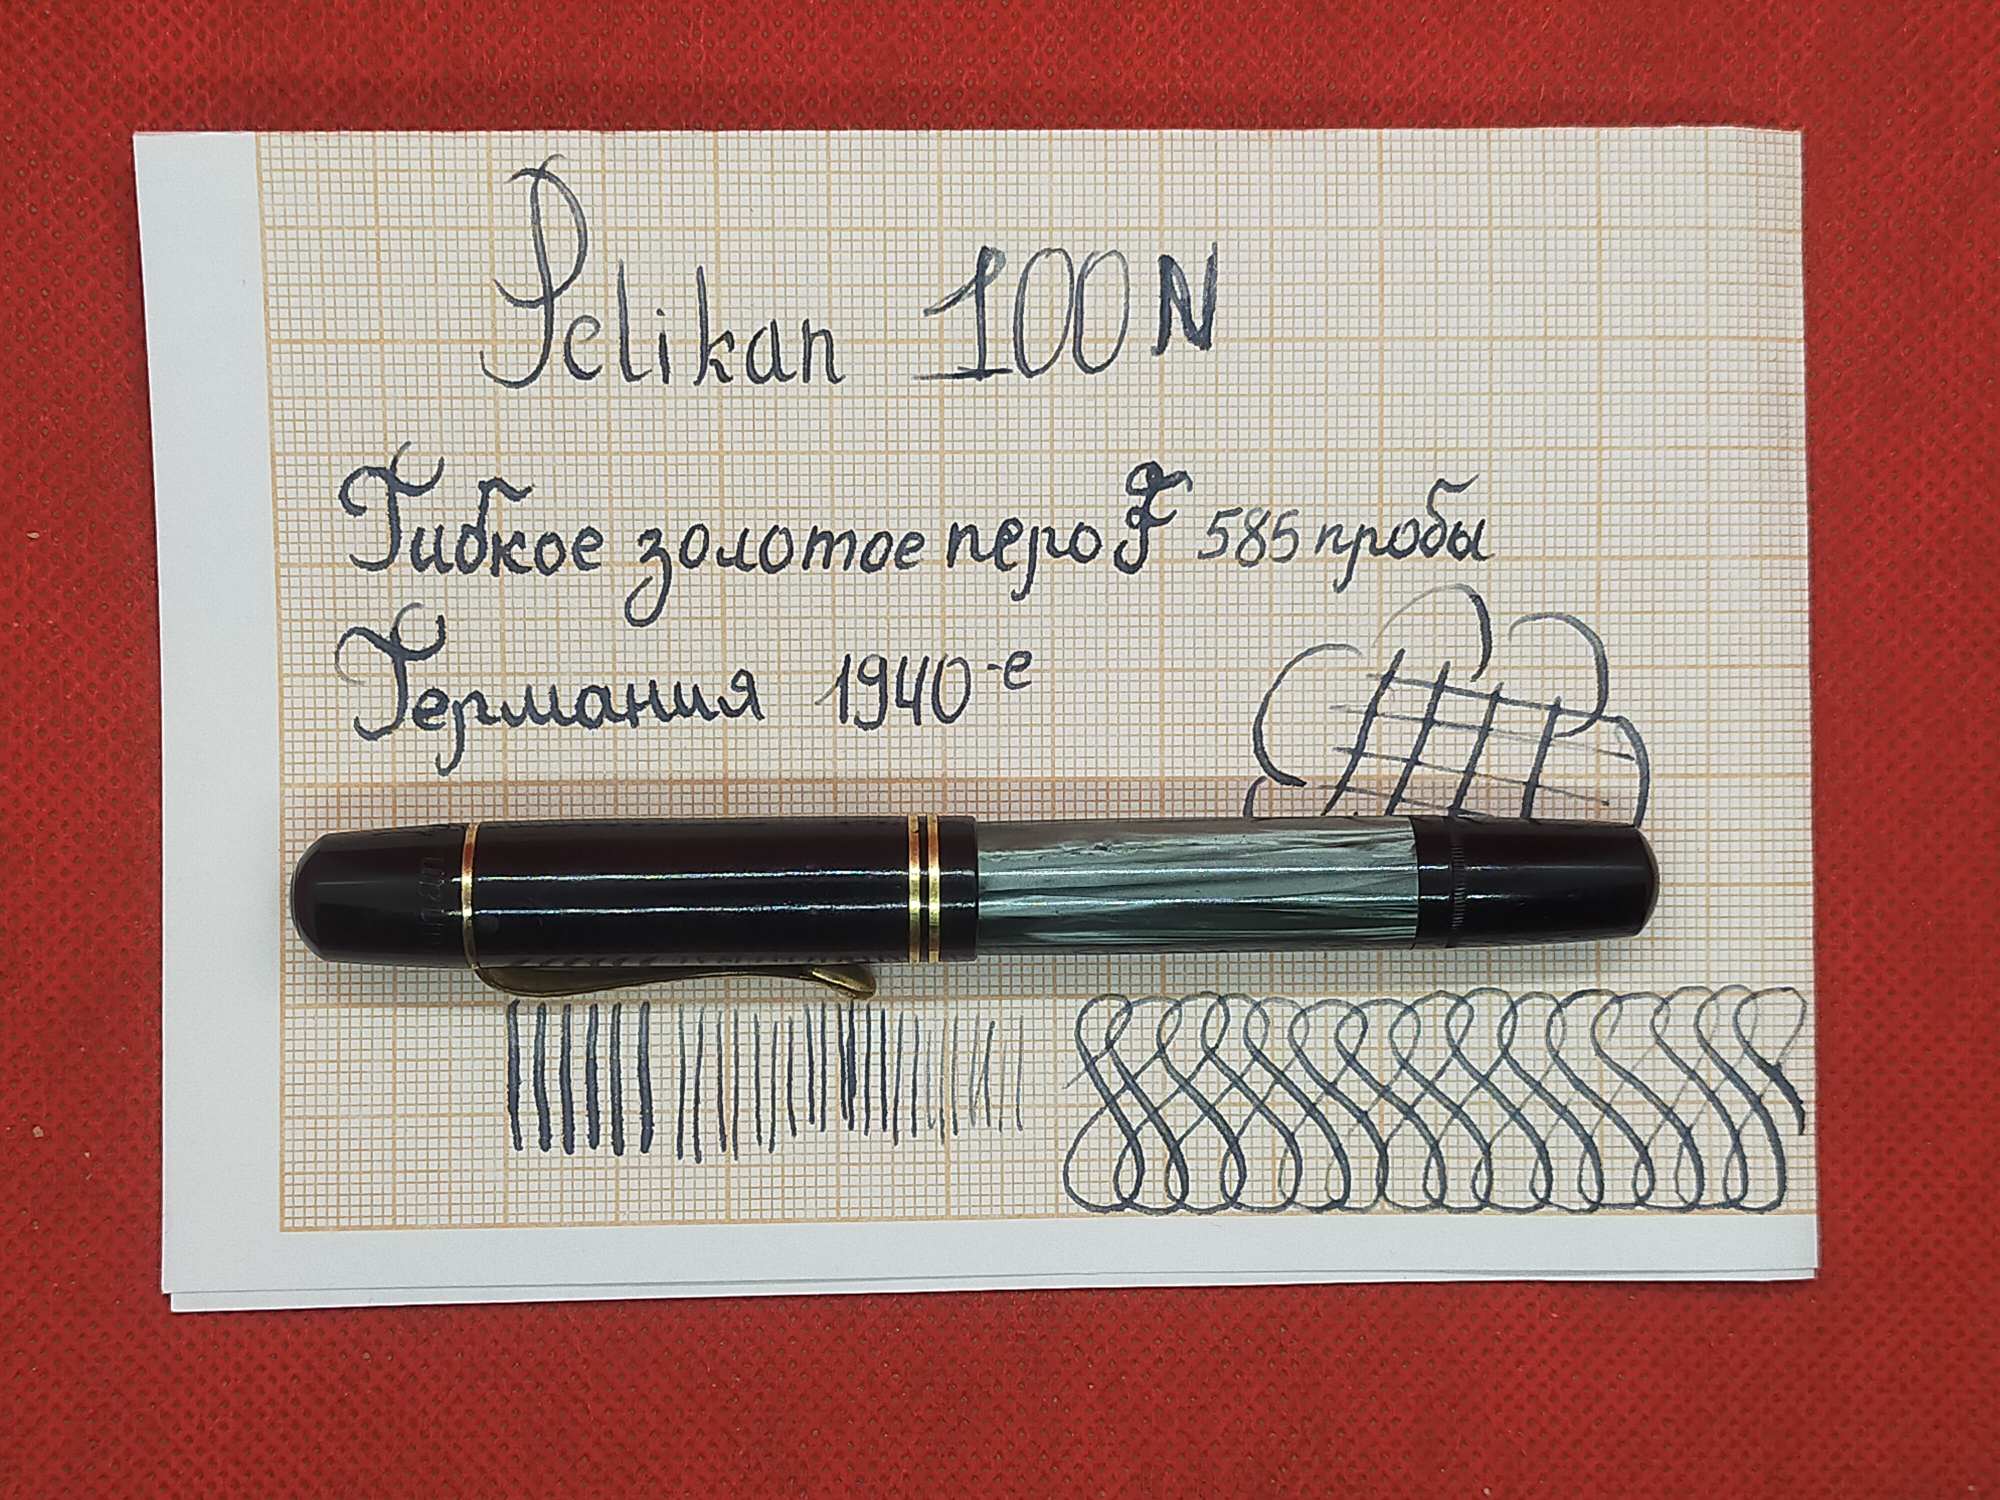 Pelikan 100N
Гибкое золотое перо F 585 пробы
Германия 1940-е